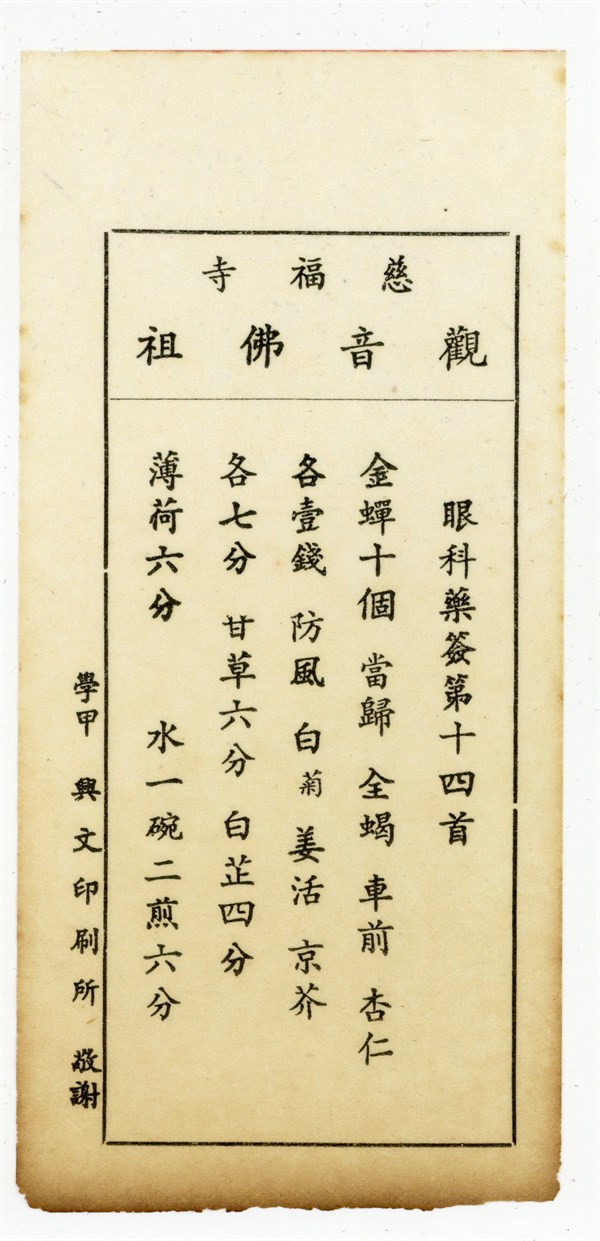 慈福寺
觀音佛祖
眼科藥簽第十四首
金蟬十個 當歸 全蝎 車前 杏仁
各壹錢 防風 白菊 姜活 京芥
各七分 甘草六分 白芷四分
薄荷六分 水一碗二煎六分
學甲 興文印刷所 敬謝